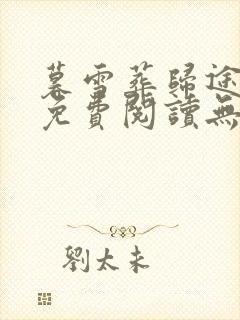 暮雪葬歸途
免費閱讀無
劉太未